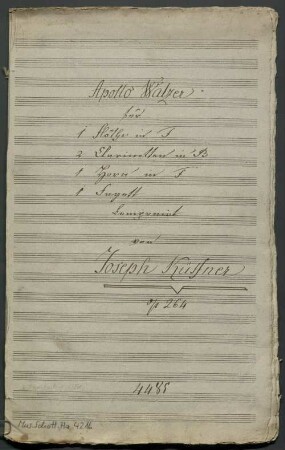 Apollo Walzer.
für
1 Flöthe in F
2 Clarinetten in B
1 Horn in F
1 Fagott
Componirt
von
Joseph Küffner
op 264
4485